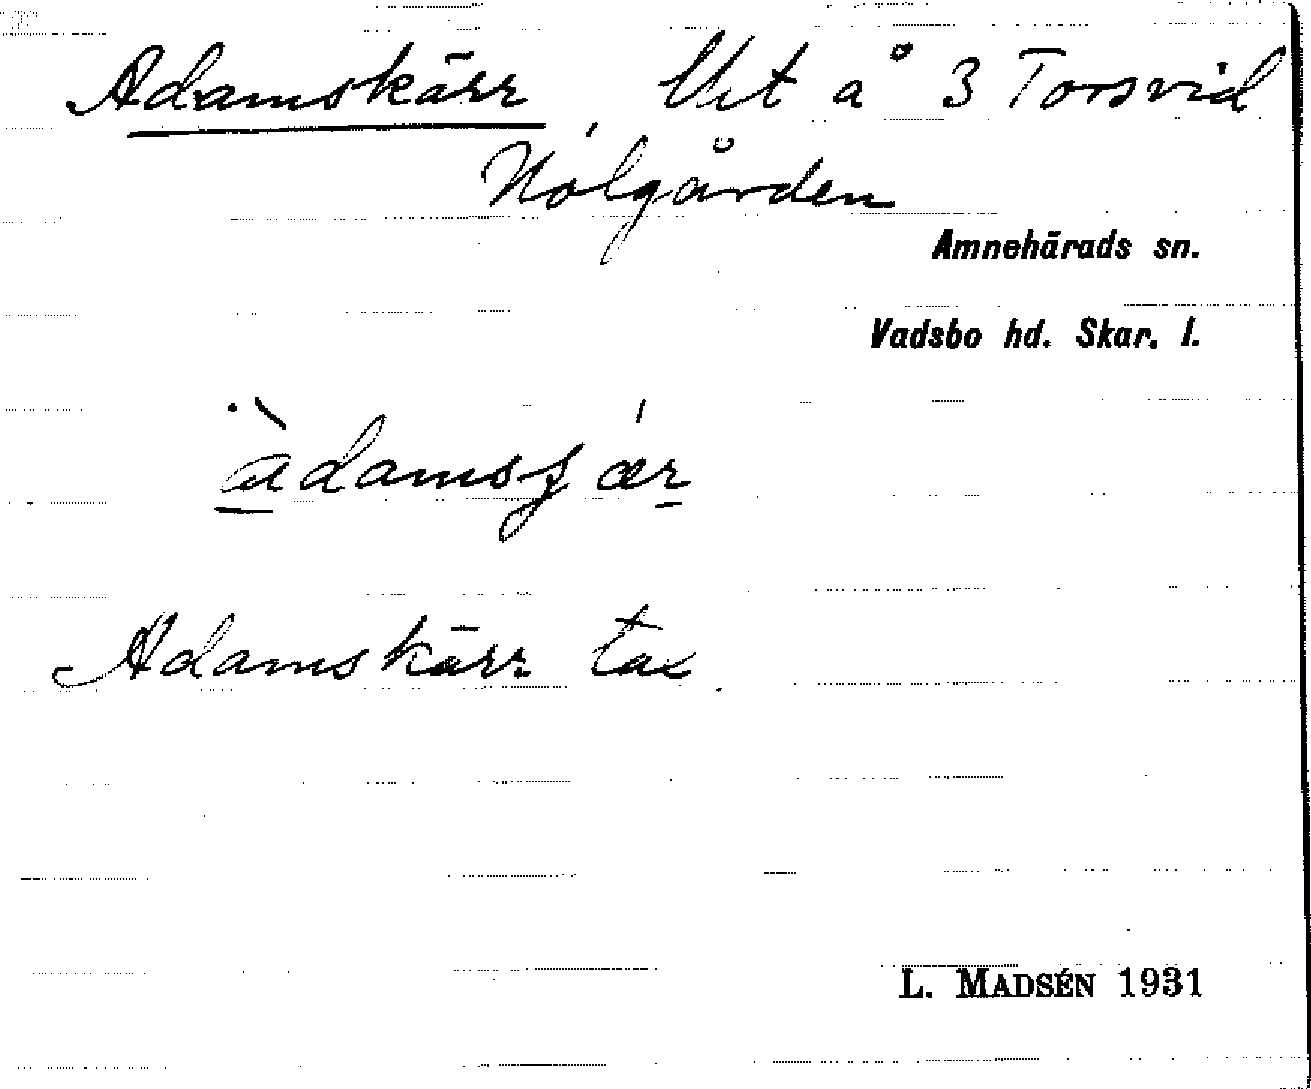 Adamskärr, Utet å 3 Torsvid
Nolgården
Amnehärads sn.
Vadsbo hd. Skar. l.
Adamskärr tax
L. MADSÉN 1931